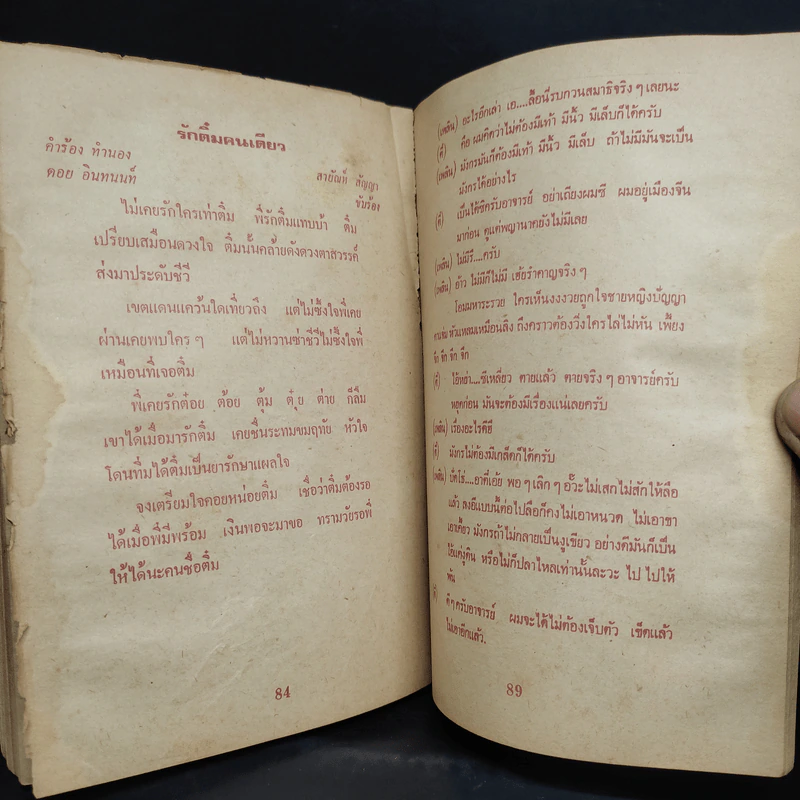 รักติ๋มคนเดียว
คำร้อง ทำนอง
คอย อินทนนท์
สายัณห์ สัญญา
ขับร้อง
ไม่เคยรักใครเท่าติ๋ม พี่รักติ๋มแทบบ้า ติ๋ม
เปรียบเสมือนดวงใจ ติ๋มนั้นคล้ายดังดวงตาสวรรค์
ส่งมาประดับชีวี
เขตแดนแคว้นใดเที่ยวถึง แต่ไม่ซึ้งใจพี่เคย
ผ่านเคยพบใคร ๆ แต่ไม่หวานซ่าชีวีไม่ซึ้งใจพี่
เหมือนที่เจอติ๋ม
พี่เคยรักต๋อย ต้อย ตุ้ม ตุ๋ย ต่าย ก็ลืม
เขาได้เมื่อมารักติ๋ม เคยชื่นระทมขมฤทัย หัวใจ
โดนทิ่มได้ติ๋มเป็นยารักษาแผลใจ
จงเตรียมใจคอยหน่อยติ๋ม เชื่อว่าติ๋มต้องรอ
ได้เมื่อพี่มีพร้อม เงินพอจะมาขอ ทรามวัยรอพี่
ให้ได้นะคนชื่อติ๋ม
84
(เพลิน) อะไรอีกเล่า เอ....ลื้อนี่รบกวนสมาธิจริง ๆ เลยนะ
(ดี) คือ ผมคิดว่าไม่ต้องมีเท้า มีนิ้ว มีเล็บก็ได้ครับ
(เพลิน) มังกรมันก็ต้องมีเท้า มีนิ้ว มีเล็บ ถ้าไม่มีมันจะเป็น
มังกรได้อย่างไร
(ดี) เป็นได้ซีครับอาจารย์ อย่าเถียงผมซี ผมอยู่เมืองจีน
มาก่อน ดูแค่พญานาคยังไม่มีเลย
(เพลิน) ไม่มีรึ....ครับ
(เพลิน) อ้าว ไม่มีก็ไม่มี เฮ้ยรำคาญจริง ๆ
โอมมหาระรวย ใครเห็นงงงวยถูกใจชายหญิงปัญญา
หัวแหลมเหมือนลิ้ง ถึงคราวต้องวิ่งใครไล่ไม่หัน เพี้ยง
จึก จึก จึก จึก
(ดี) โอ้ยหย่า....ซี้เหลี่ยว ตายแล้ว ตายจริง ๆ อาจารย์ครับ
หยุดก่อน มันจะต้องมีเรื่องแน่เลยครับ
(เพลิน) เรื่องอะไรดีดี
(ดี) มังกรไม่ต้องมีเกล็ดก็ได้ครับ
(เพลิน) บ๊ะโธ่....อาดี่เอ้ย พอ ๆ เลิก ๆ อั๊วะไม่เสกไม่สักให้ลื้อ
แล้ว ลงอีแบบนี้ต่อไปลื้อก็คงไม่เอาหนวด ไม่เอาขา
เอาเคี้ยว มังกรถ้าไม่กลายเป็นงูเขียว อย่างดีมันก็เป็น
ไอ้แค่งูดิน หรือไม่ก็ปลาไหลเท่านั้นละวะ ไป ไปให้
พ้น
ดี) ดีๆ ครับอาจารย์ ผมจะได้ไม่ต้องเจ็บตัว เข็ดแล้ว
ไม่เอาอีกแล้ว.
89